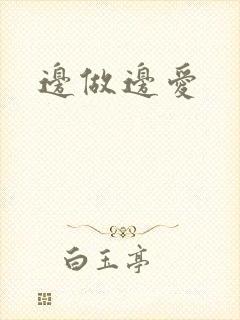 邊做邊愛
白玉亭